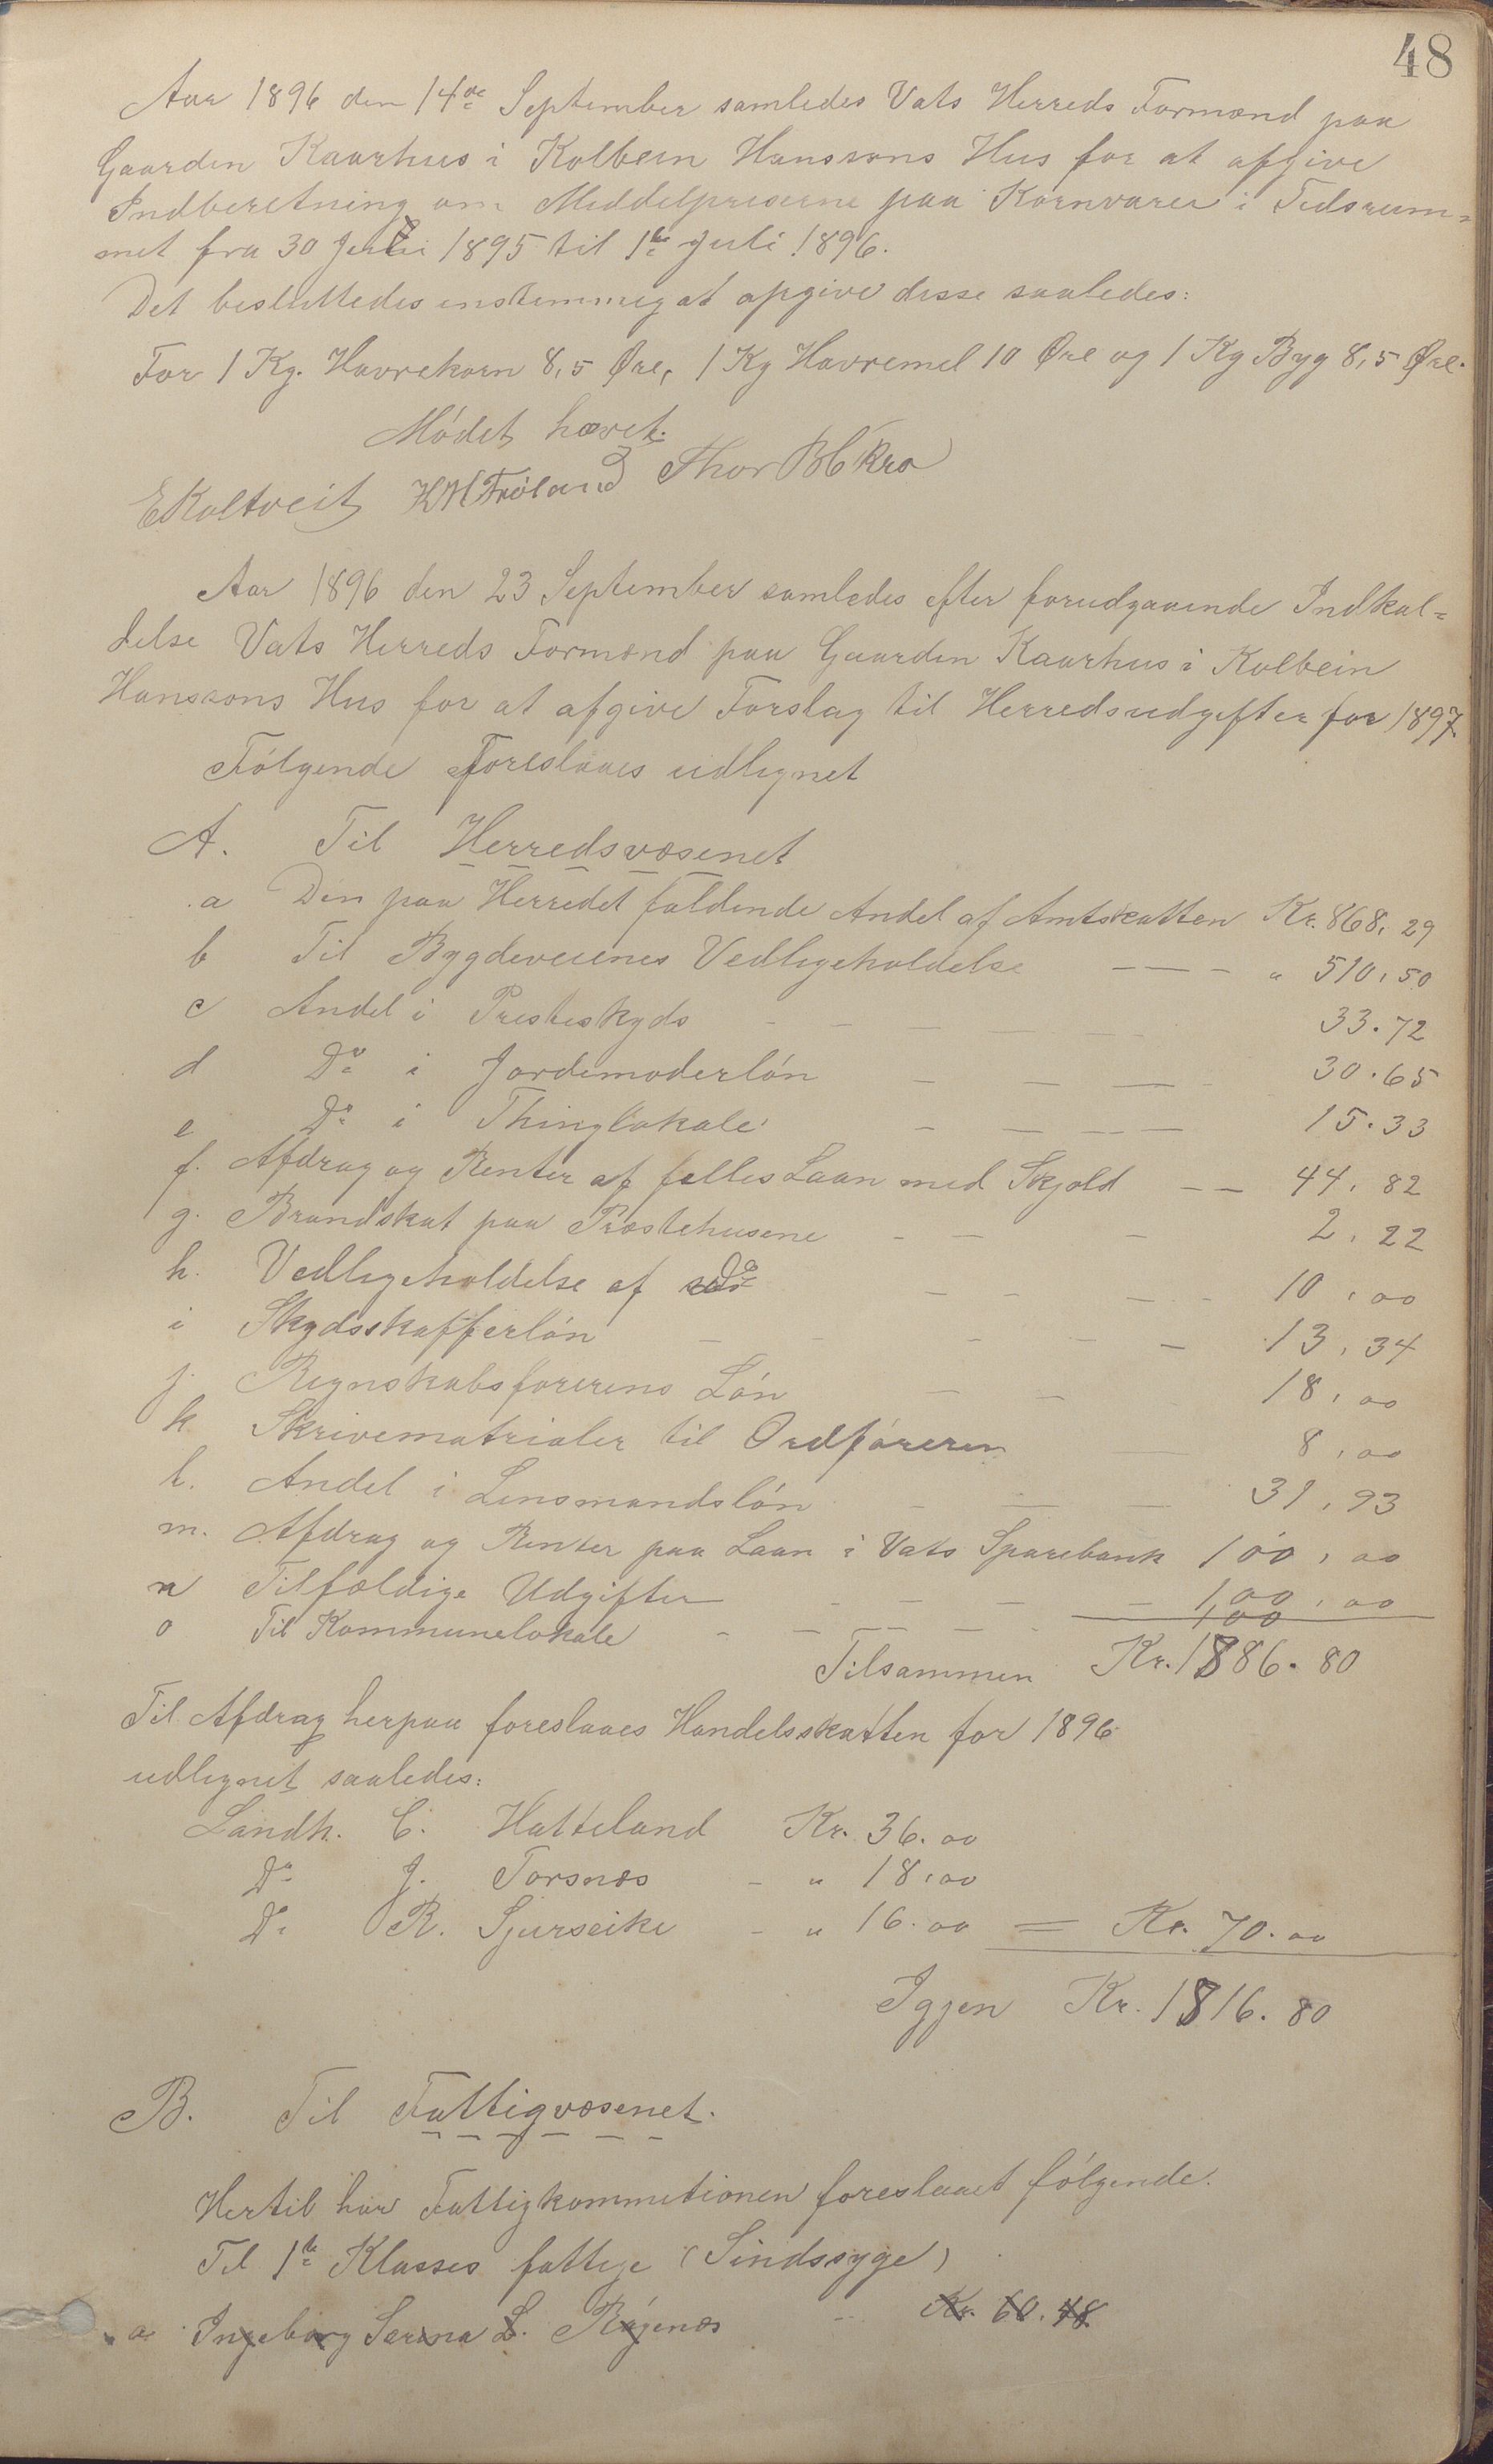 48
Aar 1896 den 14de September samledes Vats Herreds Formænd paa
Gaarden Kaarhus i Kolbein Hanssons Hus for at afgive
Indberetning om Middelpriserne paa Kornvarer i Tidsrum=
met fra 30 Juli 1895 til 1te Juli 1896.
Det besluttedes enstemmig at opgive disse saaledes:
For 1 Kg. Havrekorn 8,5 Øre, 1 Kg Havremel 10 Øre og 1 Kg Byg 8,5 Øre.
Mødet hævet.
E Koltveit H H Frøland Thor B C Kro
Aar 1896 den 23 September samledes efter forudgaaende Indkal=
delse Vats Herreds Formænd paa Gaarden Kaarhus i Kolbein
Hanssons Hus for at afgive Forslag til Herredsudgifter for 1897.
Følgende foreslaaes udlignet
A. Til Herredsvæsenet
a Den paa Herredet faldende Andel af Amtskatten Kr. 868,29
b Til Bygdeveienes Vedligeholdelse — — - " 510,50
c Andel i Presteskyds - - — — — 33.72
d Do i Jordemoderløn — — — 30.65
e Do i Thinglokale - — — — 15.33
f. Afdrag og Renter af fælles Laan med Skjold — — 44,82
g. Brandskat paa Præstehusene - — - 2,22
h. Vedligeholdelse af Do - - - - 10,00
i Skydsskafferløn - - - - — 13,34
j. Regnskabsførerens Løn — — 18,00
k Skrivematrialer til Ordføreren — 8,00
l. Andel i Lensmandsløn - — — 31,93
m. Afdrag og Renter paa Laan i Vats Sparebank 100,00
n Tilfældige Udgifter - - — — 100,00
o Til Kommunelokale - — — — - 100
Tilsammen Kr. 1886.80
Til Afdrag herpaa foreslaaes Handelsskatten for 1896
udlignet saaledes:
Landh. C. Hatteland Kr. 36.00
Do J. Torsnæs - " 18,00
Do R. Sjurseike - " 16.00 = Kr. 70.00
Igjen Kr. 1816.80
B. Til Fattigvæsenet.
Hertil har Fattigkommetionen foreslaaet følgende.
Til 1te Klasses fattige (Sindssyge)
a Ingeborg Serina L. Røgenæs - Kr. 60.48